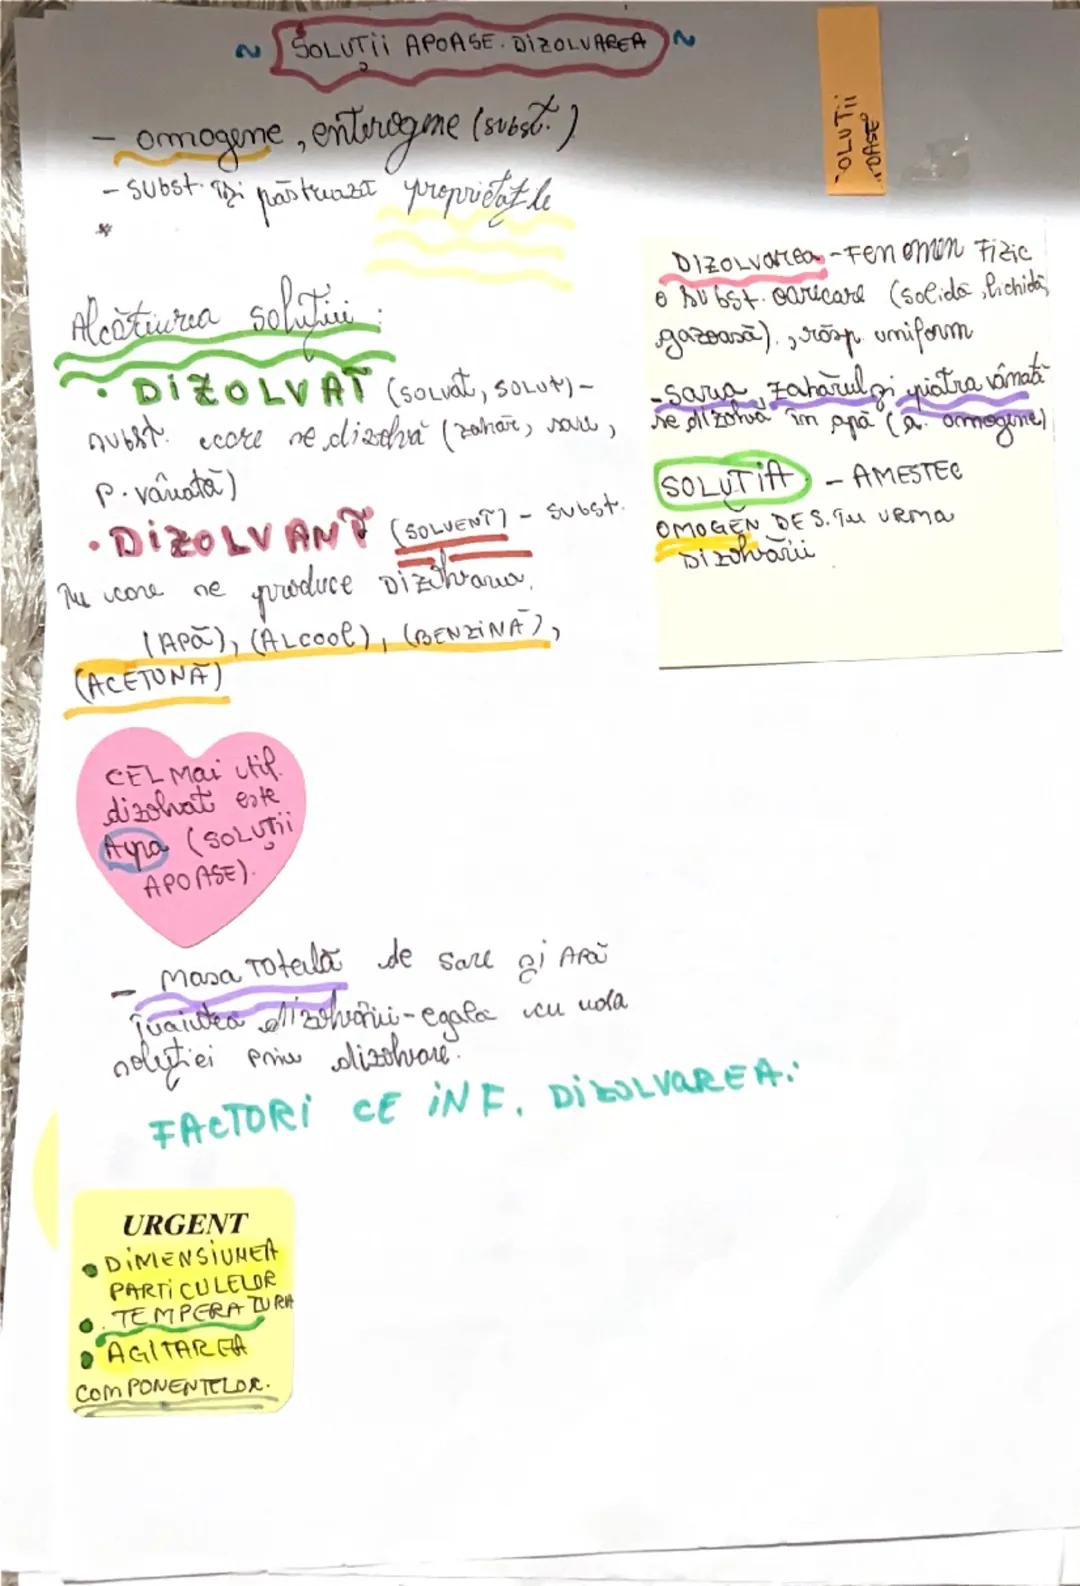 ~ SOLUȚII APOASE. DIZOLVAREA ~
- omogene, enterogene (subst.)
- subst. își păstrează proprietățile
*
OLUȚII
OASE
Alcătuirea soluției:
• DIZOLVAT (solvat, SOLUT) -
subst. care se dizolvă (zahăr, sare,
p. vânată)
• DIZOLVANT (SOLVENT) - subst.
în care se produce Dizolvarea.
(APĂ), (ALCOOL), (BENZINĂ),
(ACETONĂ)
DIZOLVAREA - FENOMEN FIZIC
o subst. oarecare (solidă, lichidă,
gazoasă), răsp. uniform
- Sarea, zahărul și piatra vânată
se dizolvă în apă (a. omogene)
SOLUȚIA - AMESTEC
OMOGEN DES. ÎN URMA
Dizolvării
CEL Mai util.
dizolvat este
Apa (SOLUȚII
APOASE).
- Masa Totală de sare și APĂ
înaintea dizolvării - egală cu cea
soluției prin dizolvare.
FACTORI CE INF. DIZOLVAREA:
URGENT
• DIMENSIUNEA
PARTICULELOR
• TEMPERATURA
• AGITAREA
COMPONENTELOR.